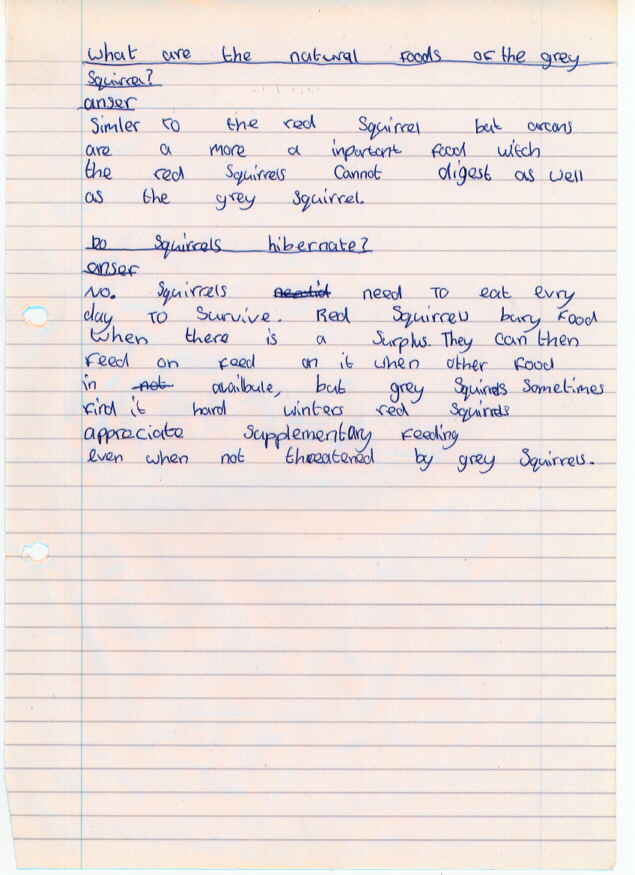 What are the natural foods of the grey
Squirrel?
anser
Simler to the red Squirrel but arcons
are a more a inportant food witch
the red Squirrels cannot digest as well
as the grey squirrel.
Do Squirrels hibernate?
anser
No. Squirrels need to eat evry
day to survive. Red Squirrels bury food
when there is a surplus. They can then
feed on feed on it when other food
in not availbule, but grey Squirrels Sometimes
find it hard winters red Squirrels
appreciate supplementary feeding
even when not threatened by grey Squirrels.